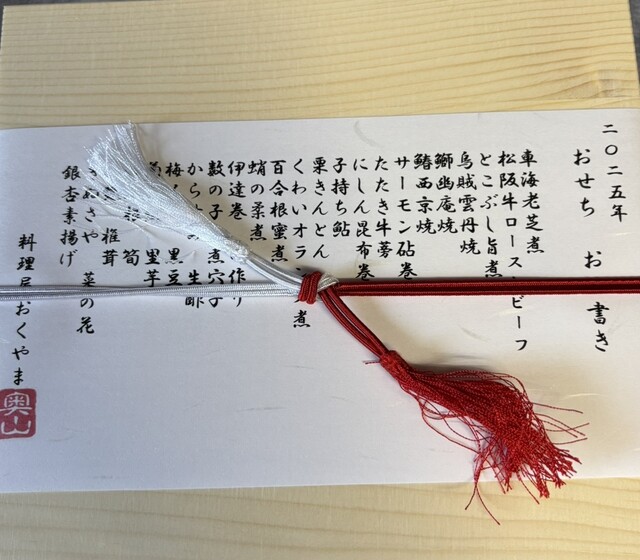 二〇二五年
おせち お 書き
車海老芝煮
松阪牛ロース ビーフ
とこぶし旨煮
烏賊雲丹焼
鰤幽庵焼
鰆西京焼
サーモン砧巻
たたき牛蒡
にしん昆布巻
子持ち鮎
栗きんとん
くわいオラン 煮
百合根蜜煮
蛸の柔煮
伊達巻 作り
数の子 煮穴子
から 生酢
梅 黒豆
里芋
筍
椎茸
ぬさや 菜の花
銀杏素揚げ
料理屋おくやま
奥山